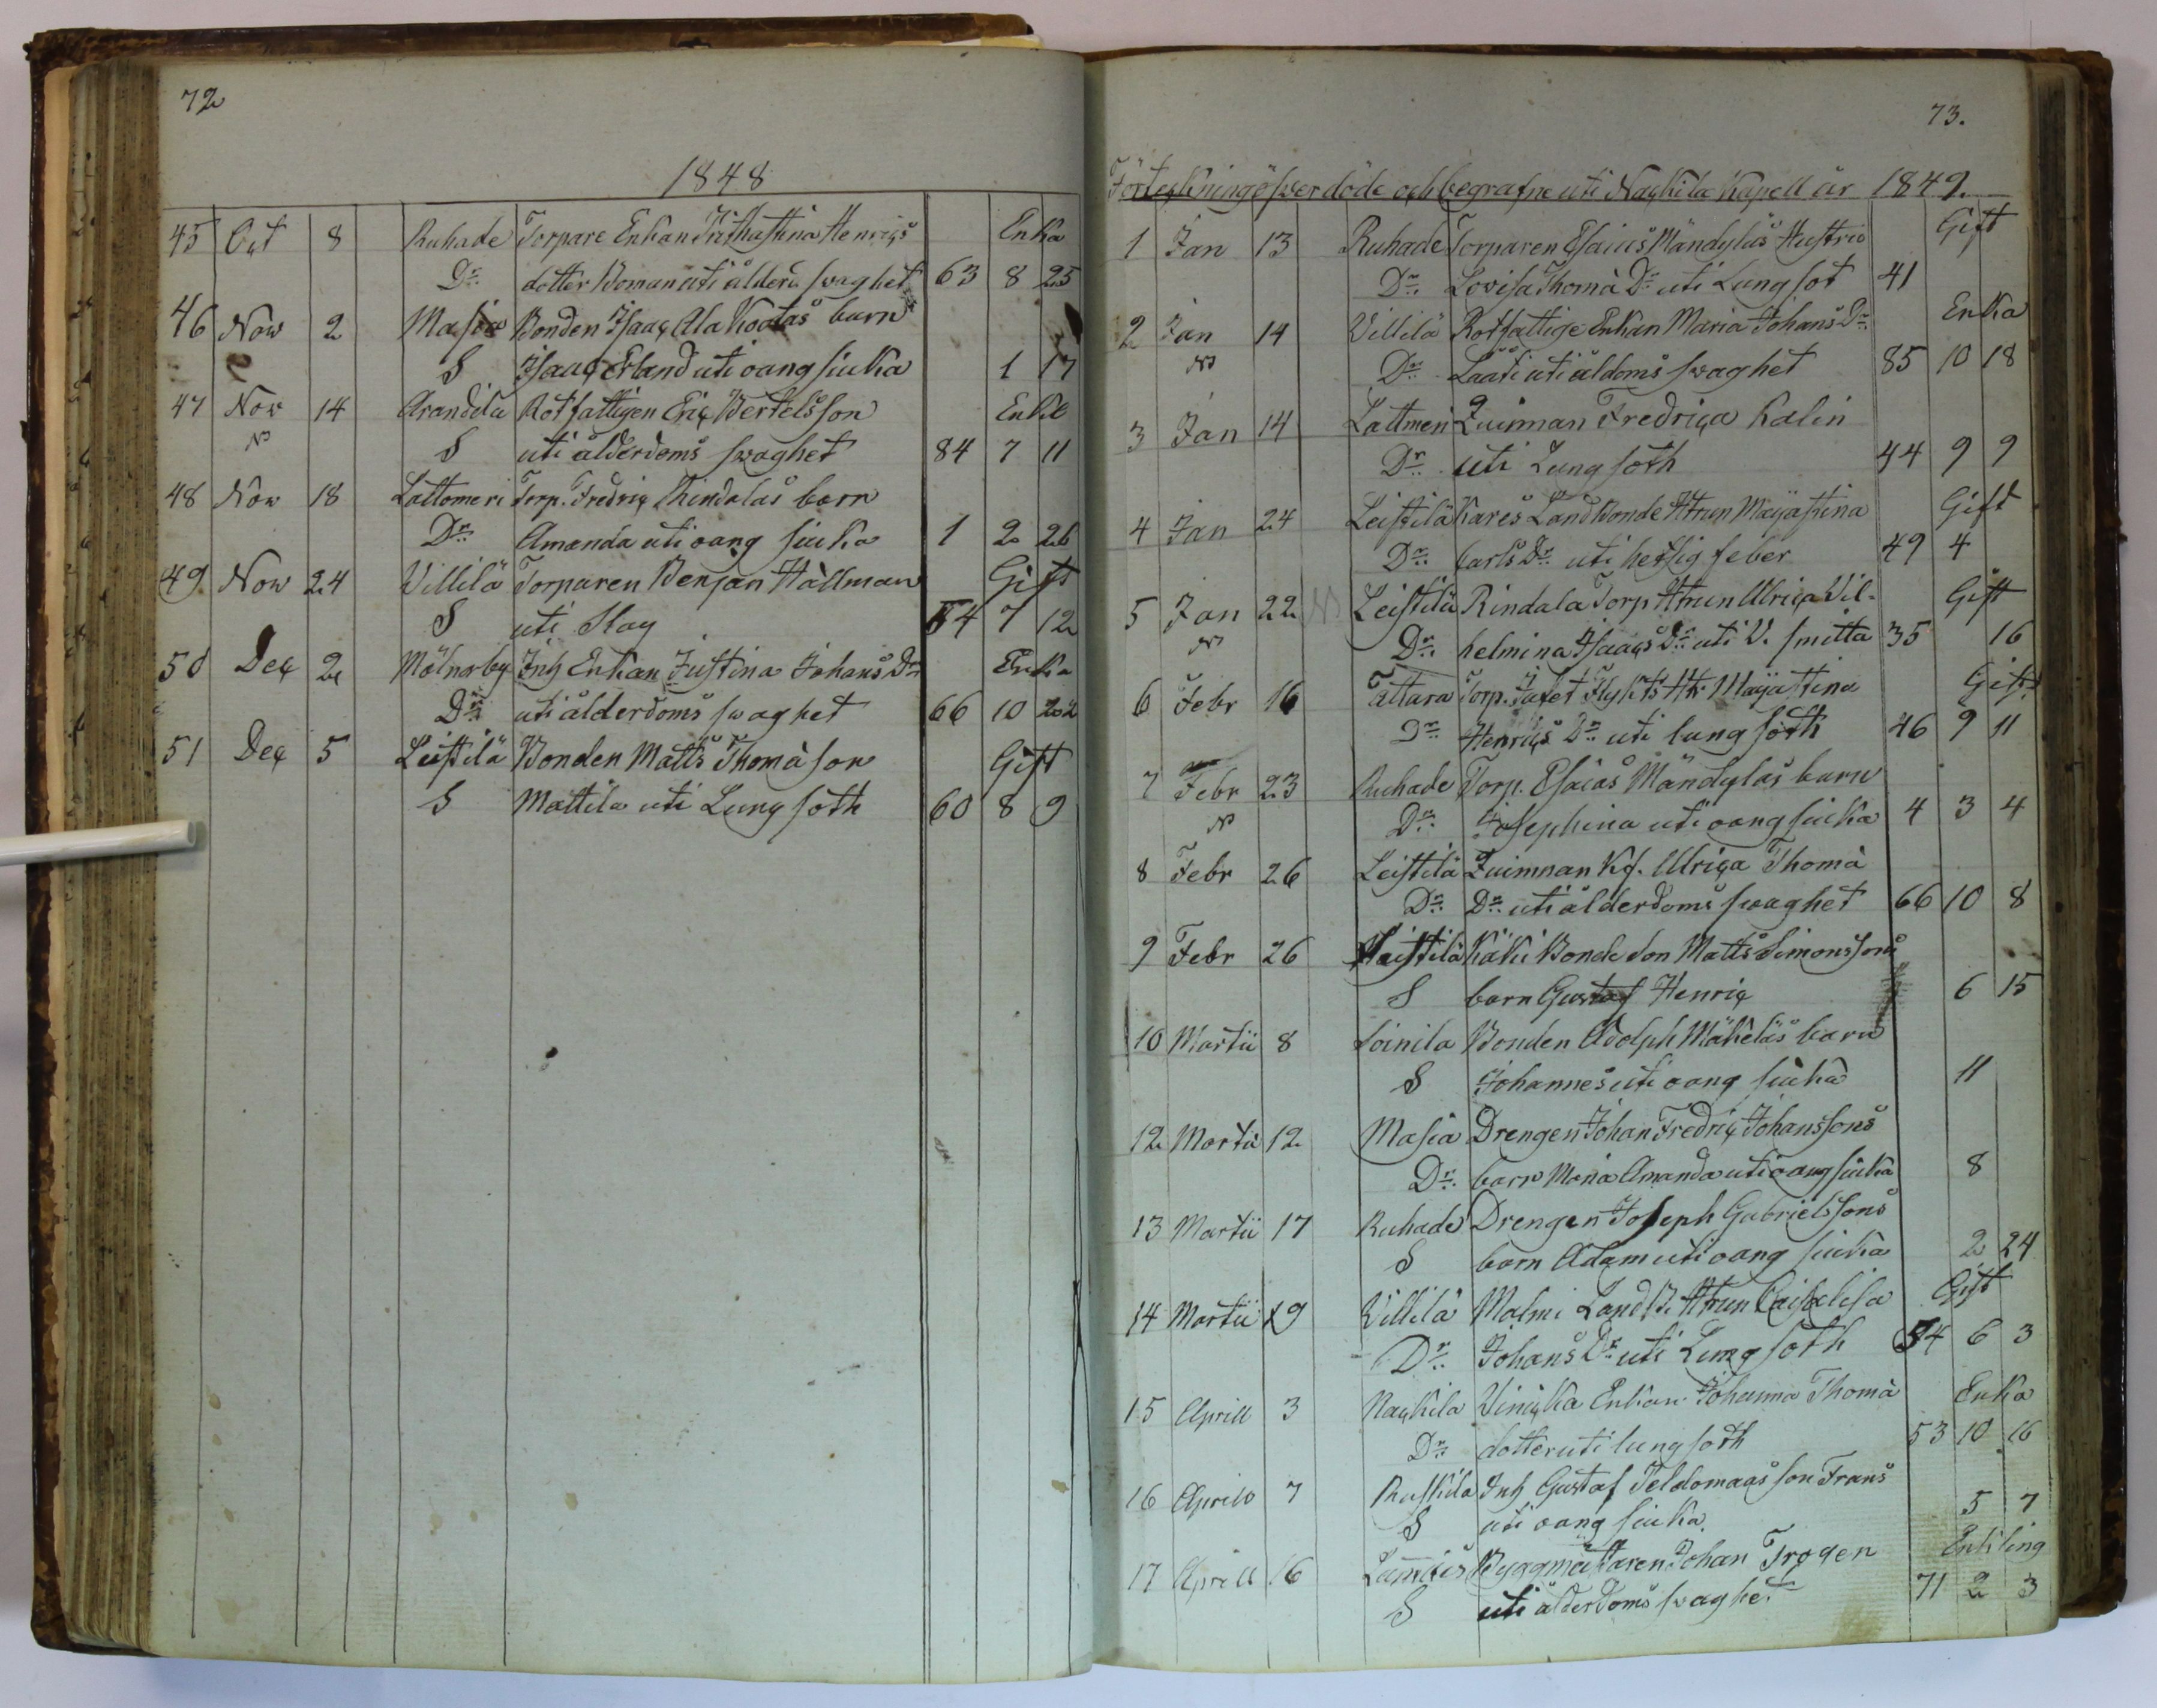 72
1848
45 Oct 8 Ruhade Torpare Enkan Henrics Enka
Dr dotter Boman uti ålders swaghet 63 8 25
46 Now 2 Masia Bonden Isaac Ala Kootas barn
S Isaac Erland uti oang siuka 1 17
47 Now 14 Arandila Rotfattigen Eric Bertelsson Enkl
S uti ålderdoms swaghet 84 7 11
48 Now 18 Lattomeri Torp. Fredric Rindalas barn
Dr Amanda uti oang siuka 1 2 26
49 Now 24 Villilä Torparen Benjan Hällman Gift
S uti Slag 54 7 12
50 Dec 2 Mölnarby Inh Enkan Justina Johans Dr Enka
Dr uti ålderdoms swaghet 66 10
51 Dec 5 Leistilä Bonden Matts Thomà son Gift
S Mattila uti Lung soth 60 8 9
73.
Förteckning öfwer döde och begrafne uti Nackila Kapell år 1849.
1 Jan 13 Ruhade Torparen Esaias Mändyläs Hustru Gift
Dr Lovisa Thomà Dr uti Lung sot 41
2 Jan 14 Villilä Rotfattige Enkan Maria Johans Dr Enka
Dr Lååti uti åldoms swaghet 85 10 18
3 Jan 14 Lattmeri Quinnan Fredrica Kalin
Dr uti Lung soth 44 9 9
4 Jan 24 Leistilä Kares Land Bonde Htrun Majastina Gift
Dr Carls Dr uti hetsig feber 49 4
5 Jan 22 Leistilä Rindala Torp Htrun Ulrica Vil- Gift
Dr helmina Isaacs Dr uti V. smitta 35 16
6 Febr 16 Tattara Torp. Flykts Htr Majastina Gift
Dr Henrics Dr uti lung soth 46 9 11
7 Febr 23 Ruhade Torp. Esaias Mändyläs barn
Dr Josephina uti oang siuka 4 3 4
8 Febr 26 Leistilä Quinnan Kf. Ulrica Thomà
Dr Dr uti ålderdoms swaghet 66 10 8
9 Febr 26 Leistilä Käki Bonde son Matts Simonssons
S barn Gustaf Henric 6 15
10 Martii 8 Soinila Bonden Adolph Mäkeläs barn
S Johannes uti oang siuka 11
12 Martii 12 Masia Drengen Johan Fredric Johanssons
Dr barn Maria Amanda uti oang siuka 8
13 Martii 17 Ruhade Drengen Joseph Gabrielssons
S barn Adam uti oang siuka 2 24
14 Martii 19 Villilä Malmi Land B. Htrun Caisalisa Gift
Dr Johans Dr uti Lung soth 54 6 3
15 Aprill 3 Nackila Viniska Enkan Johanna Thomà Enka
Dr dotter uti lung soth 53 10 16
16 Aprill 7 Ruskila Inh Gustaf Peldomaas son Frans
S uti oang siuka 5 7
17 Aprill 16 Byggmästaren Johan Trogen Enkling
S uti ålderdoms swaghet 71 2 3